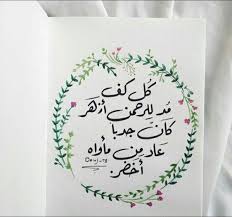 كل كف
مد للرحمن أزهر
كان جدبا
عاد من مأواه
أخضر